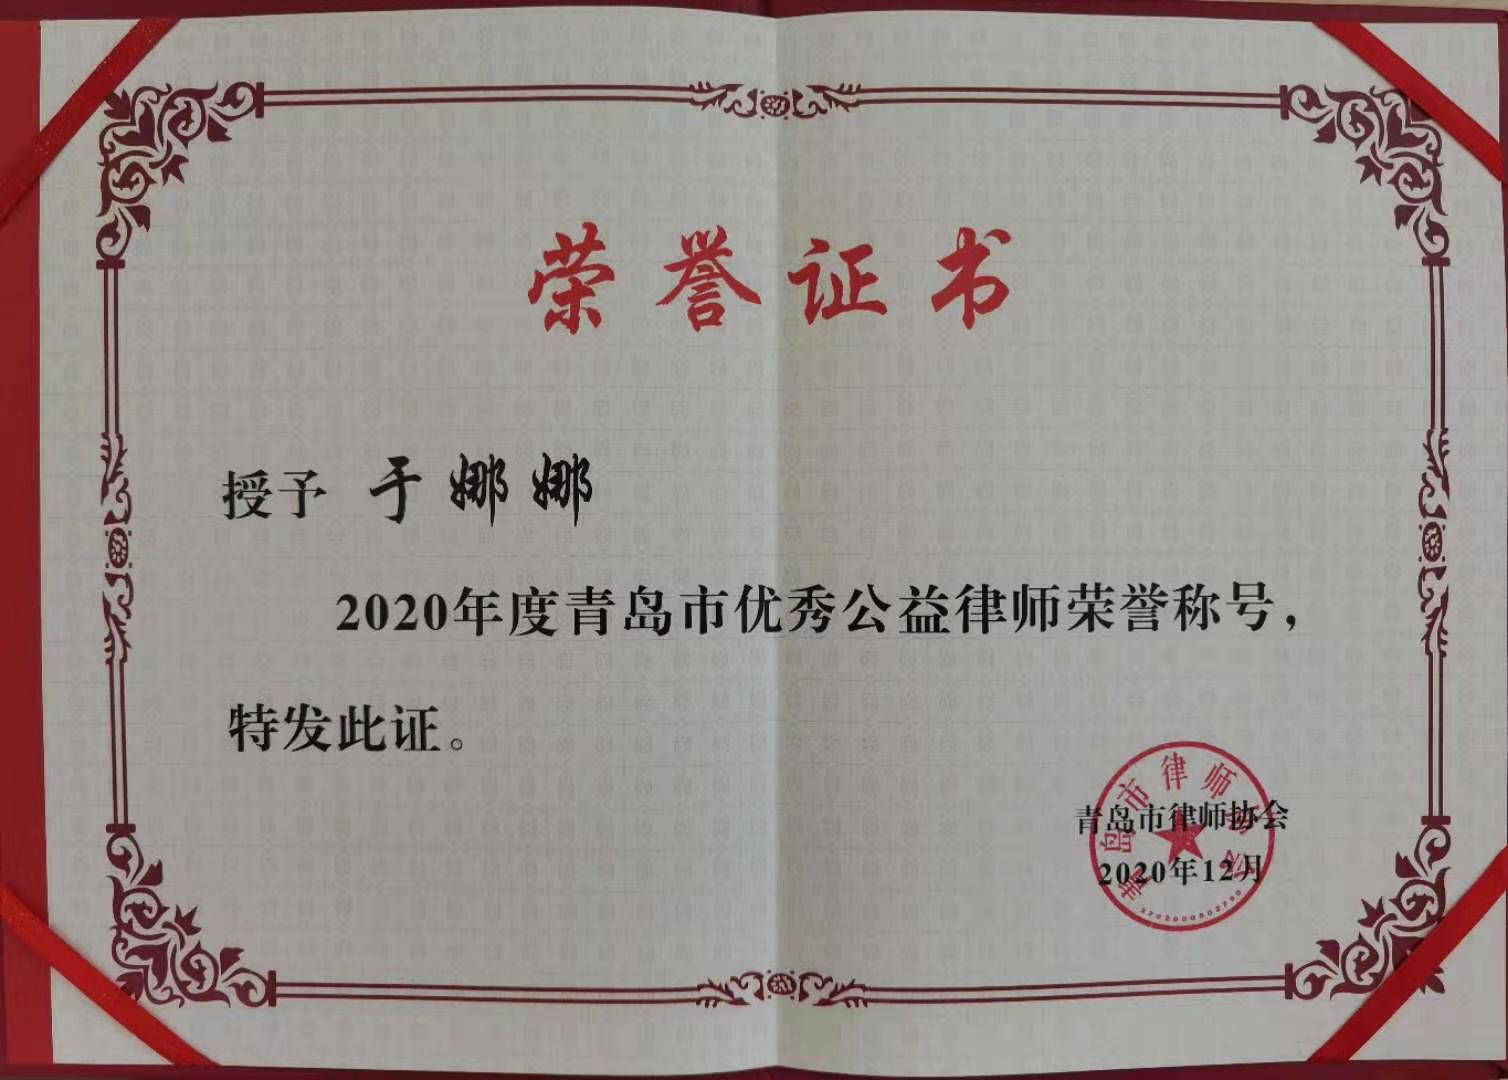 荣誉证书
授予 于娜娜
2020年度青岛市优秀公益律师荣誉称号，
特发此证。
青岛市律师协会
2020年12月
青岛市律师协会